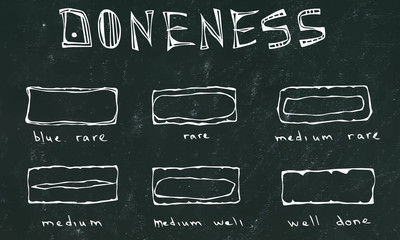 DONENESS
blue rare
rare
medium rare
medium
Medium well
well done